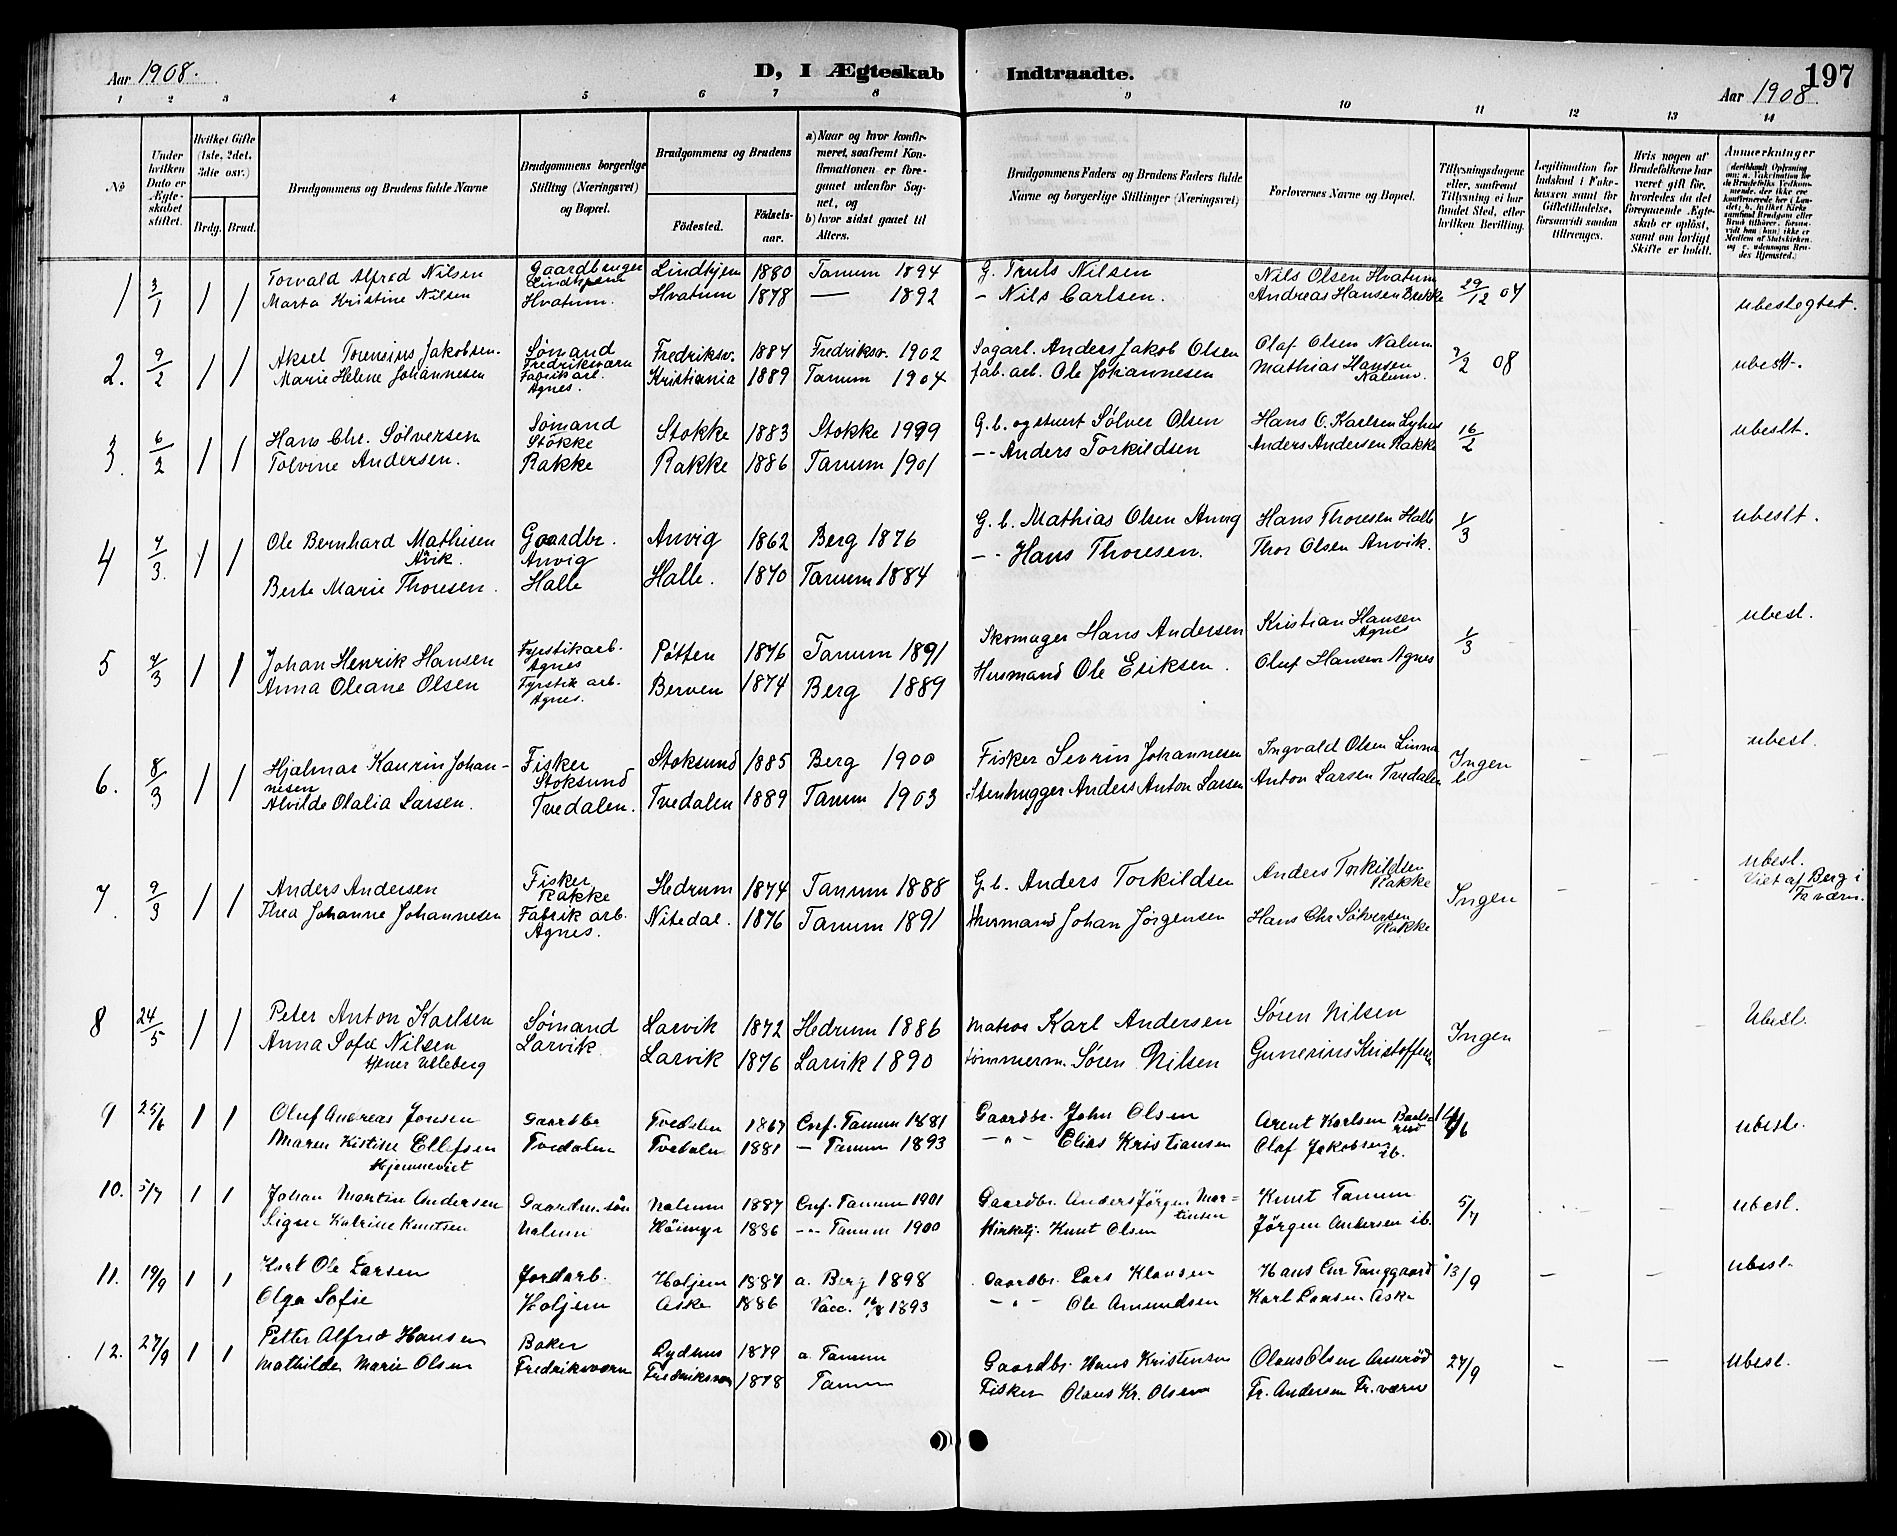 Aar 1908.
D, I Ægteskab Indtraadte.
197
Aar 1908.
1 2 3 4 5 6 7 8 9 10 11 12 13 14
No
Under hvilken Dato er Ægteskabet stiftet.
Hvilket Gifte (1ste, 2det, 3die osv.)
Brdg. Brud.
Brudgommens og Brudens fulde Navne
Brudgommens borgerlige Stilling (Næringsvei) og Bopæl.
Brudgommens og Brudens
Fødested. Fødselsaar.
a) Naar og hvor konfirmeret, saafremt Konfirmationen er foregaaet udenfor Sognet, og
b) hvor sidst gaaet til Alters.
Brudgommens Faders og Brudens Faders fulde Navne og borgerlige Stillinger (Næringsvei)
Forlovernes Navne og Bopæl.
Tillysningsdagene eller, saafremt Tillysning ei har fundet Sted, efter hvilken Bevilling.
Legitimation for Indskud i Enkekassen samt for Giftetilladelse, forsaavidt saadan tiltrænges.
Hvis nogen af Brudefolkene har været gift før, hvorledes da det foregaaende Ægteskab er opløst, samt om lovligt Skifte er holdt.
Anmærkninger
1 3/1 1 1 Torvald Alfred Nilsen Gaardbruger Lindhjem Lindhjem 1880 Tanum 1894 G. Truls Nilsen Nils Olsen Hvatum 29/12 07 ubeslegtet.
Marta Kristine Nilsen Hvatum. Hvatum 1878 — 1892 – Nils Carlsen. Andreas Hansen Brekke
2. 9/2 1 1 Aksel Toreneius Jakobsen. Sømand Fredriksværn Fredriksv. 1884 Fredriksv. 1902 Sagarb. Anders Jakob Olsen Olaf Olsen Nalum 2/2 08 ubesl.
Marie Helene Johannesen Fabrik arb. Agnes. Kristiania 1889 Tanum 1904 fab. arb. Ole Johannesen Mathias Hansen Nalum.
3. 6/2 1 1 Hans Chr. Sølversen Sømand Stokke Stokke 1883 Stokke 1999 G. b. og stuert Sølver Olsen Hans O. Karlsen 16/2 ubeslt.
Tolvine Andersen. Rakke Rakke 1886 Tanum 1901 – – Anders Torkildsen Anders Andersen Rakke
4 7/3. 1 1 Ole Bernhard Mathisen Avik. Gaardbr. Anvig Anvig 1862 Berg 1876 G. b. Mathias Olsen Anvig Hans Thoresen Halle 1/3 ubeslt.
Berte Marie Thoresen. Halle Halle. 1870 Tanum 1884 – – Hans Thoresen. Thor Olsen Anvik.
5 7/3 1 1 Johan Henrik Hansen Fyrstikarb. Agnes Pøtten 1876 Tanum 1891 Skomager Hans Andersen Kristian Hansen Agnes 1/3 ubesl.
Anna Oleane Olsen Fyrstik arb. Agnes. Berven 1874 Berg 1889 Husmand Ole Eriksen. Oluf Hansen Agnes
6. 8/3 1 1 Hjalmar Kaurin Johannesen Fisker Stoksund Stoksund 1885 Berg 1900 Fisker Sevrin Johannesen Ingvald Olsen Linna Ingen ubesl.
Alvilde Olalia Larsen. Tvedalen. Tvedalen 1889 Tanum 1903 Stenhugger Anders Anton Larsen Anton Larsen Tvedalen
7. 9/3 1 1 Anders Andersen Fisker Rakke Hedrum 1874 Tanum 1888 G. b. Anders Torkildsen Anders Torkildsen Rakke Ingen ubesl. Viet af Berg i Fr værn.
Thea Johanne Johannesen Fabrik arb. Agnes. Nitedal. 1876 Tanum 1891 Husmand Johan Jörgensen Hans Chr Sølversen Rakke
8 24/5 1 1 Peter Anton Karlsen Sømand Larvik Larvik 1872 Hedrum 1886 Matros Karl Andersen Søren Nilsen Ingen Ubesl.
Anna Sofie Nilsen Larvik 1876 Larvik 1890 Tømmerm. Søren Nilsen Gunerius Kristoffers
9 25/6 1 1 Oluf Andreas Jonsen Gaardbr Tvedalen 1867 Cnf. Tanum 1881 Gaardbr. John Olsen Arent Karlsen 6 ubesl.
Maren Kistine Ellefsen Hjemmeviet Tvedalen Tvedalen 1881 – Tanum 1893 – " – Elias Kristiansen Olaf Jakobsen ib.
10. 5/7 1 1 Johan Martin Andersen Gaardm. søn Nalum 1887 Cnf. Tanum 1901 Gaardbr. Anders Jörgen Martinsen Knut Tanum 5/7 ubesl.
Signe Katrine Knutsen Nalum Höimyr 1886 – " – Tanum 1900 Kirketj. Knut Olsen Jørgen Andersen ib.
11. 19/9 1 1 Karl Ole Larsen Jordarb. Holjem 1887 a. Berg 1898 Gaardbr. Lars Klausen Hans Chr Tanggaard 13/9 — — ubesl.
Olga Sofie Holjem Aske 1886 Vacc. 16/8 1893 – " – Ole Amundsen Karl Larsen Aske
12. 27/9 1 1 Petter Alfred Hansen Baker Lydhus 1879 a. Tanum Gaardbr. Hans Kristensen Olaus Olsen Anserød 27/9 – — ubesl.
Mathilde Marie Olsen Fredriksværn Fredriksværn 1878 Tanum Fisker Olaus Kr. Olsen Fr. Andersen Fr. værn